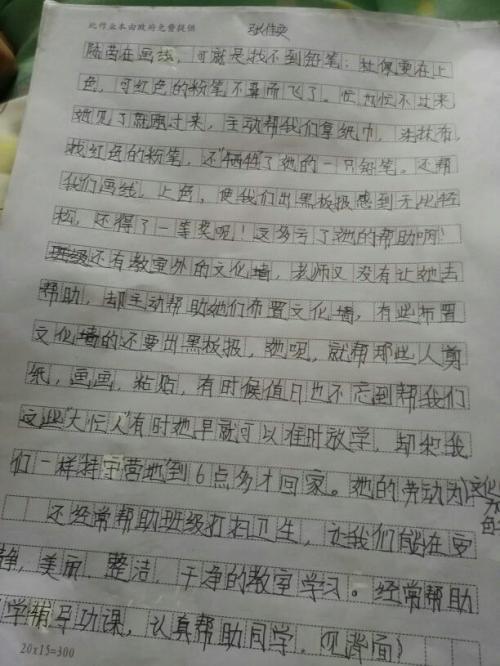 此作业本由政府免费提供
陆茜在画线，可就是找不到铅笔；杜保雯在上
色，可红色的粉笔不翼而飞了。忙加忙不过来
她见了就跑过来，主动帮我们拿纸巾，沫抹布，
找红色的粉笔，还"牺牲"了她的一只铅笔。还帮
我们画线，上色，使我们出黑板报感到无比轻
松，还得了一等奖呢！这多亏了她的帮助啊！
还有教室外的文化墙，老师又没有让她去
帮助，却主动帮助她们布置文化墙，有些布置
文化墙的还要出黑板报，她呢，就帮那些人剪
纸，画画，粘贴，有时候值日也不忘到帮我们
这些"大忙人"有时她早就可以准时放学，却和我
们一样"特守营地"到6点多才回家。她的劳动为文化
还经常帮助班级打扫卫生，让我们能在安
静，美丽，整洁，干净的教室学习。经常帮助
学辅导功课，认真帮助同学。（见背面）
20x15=300